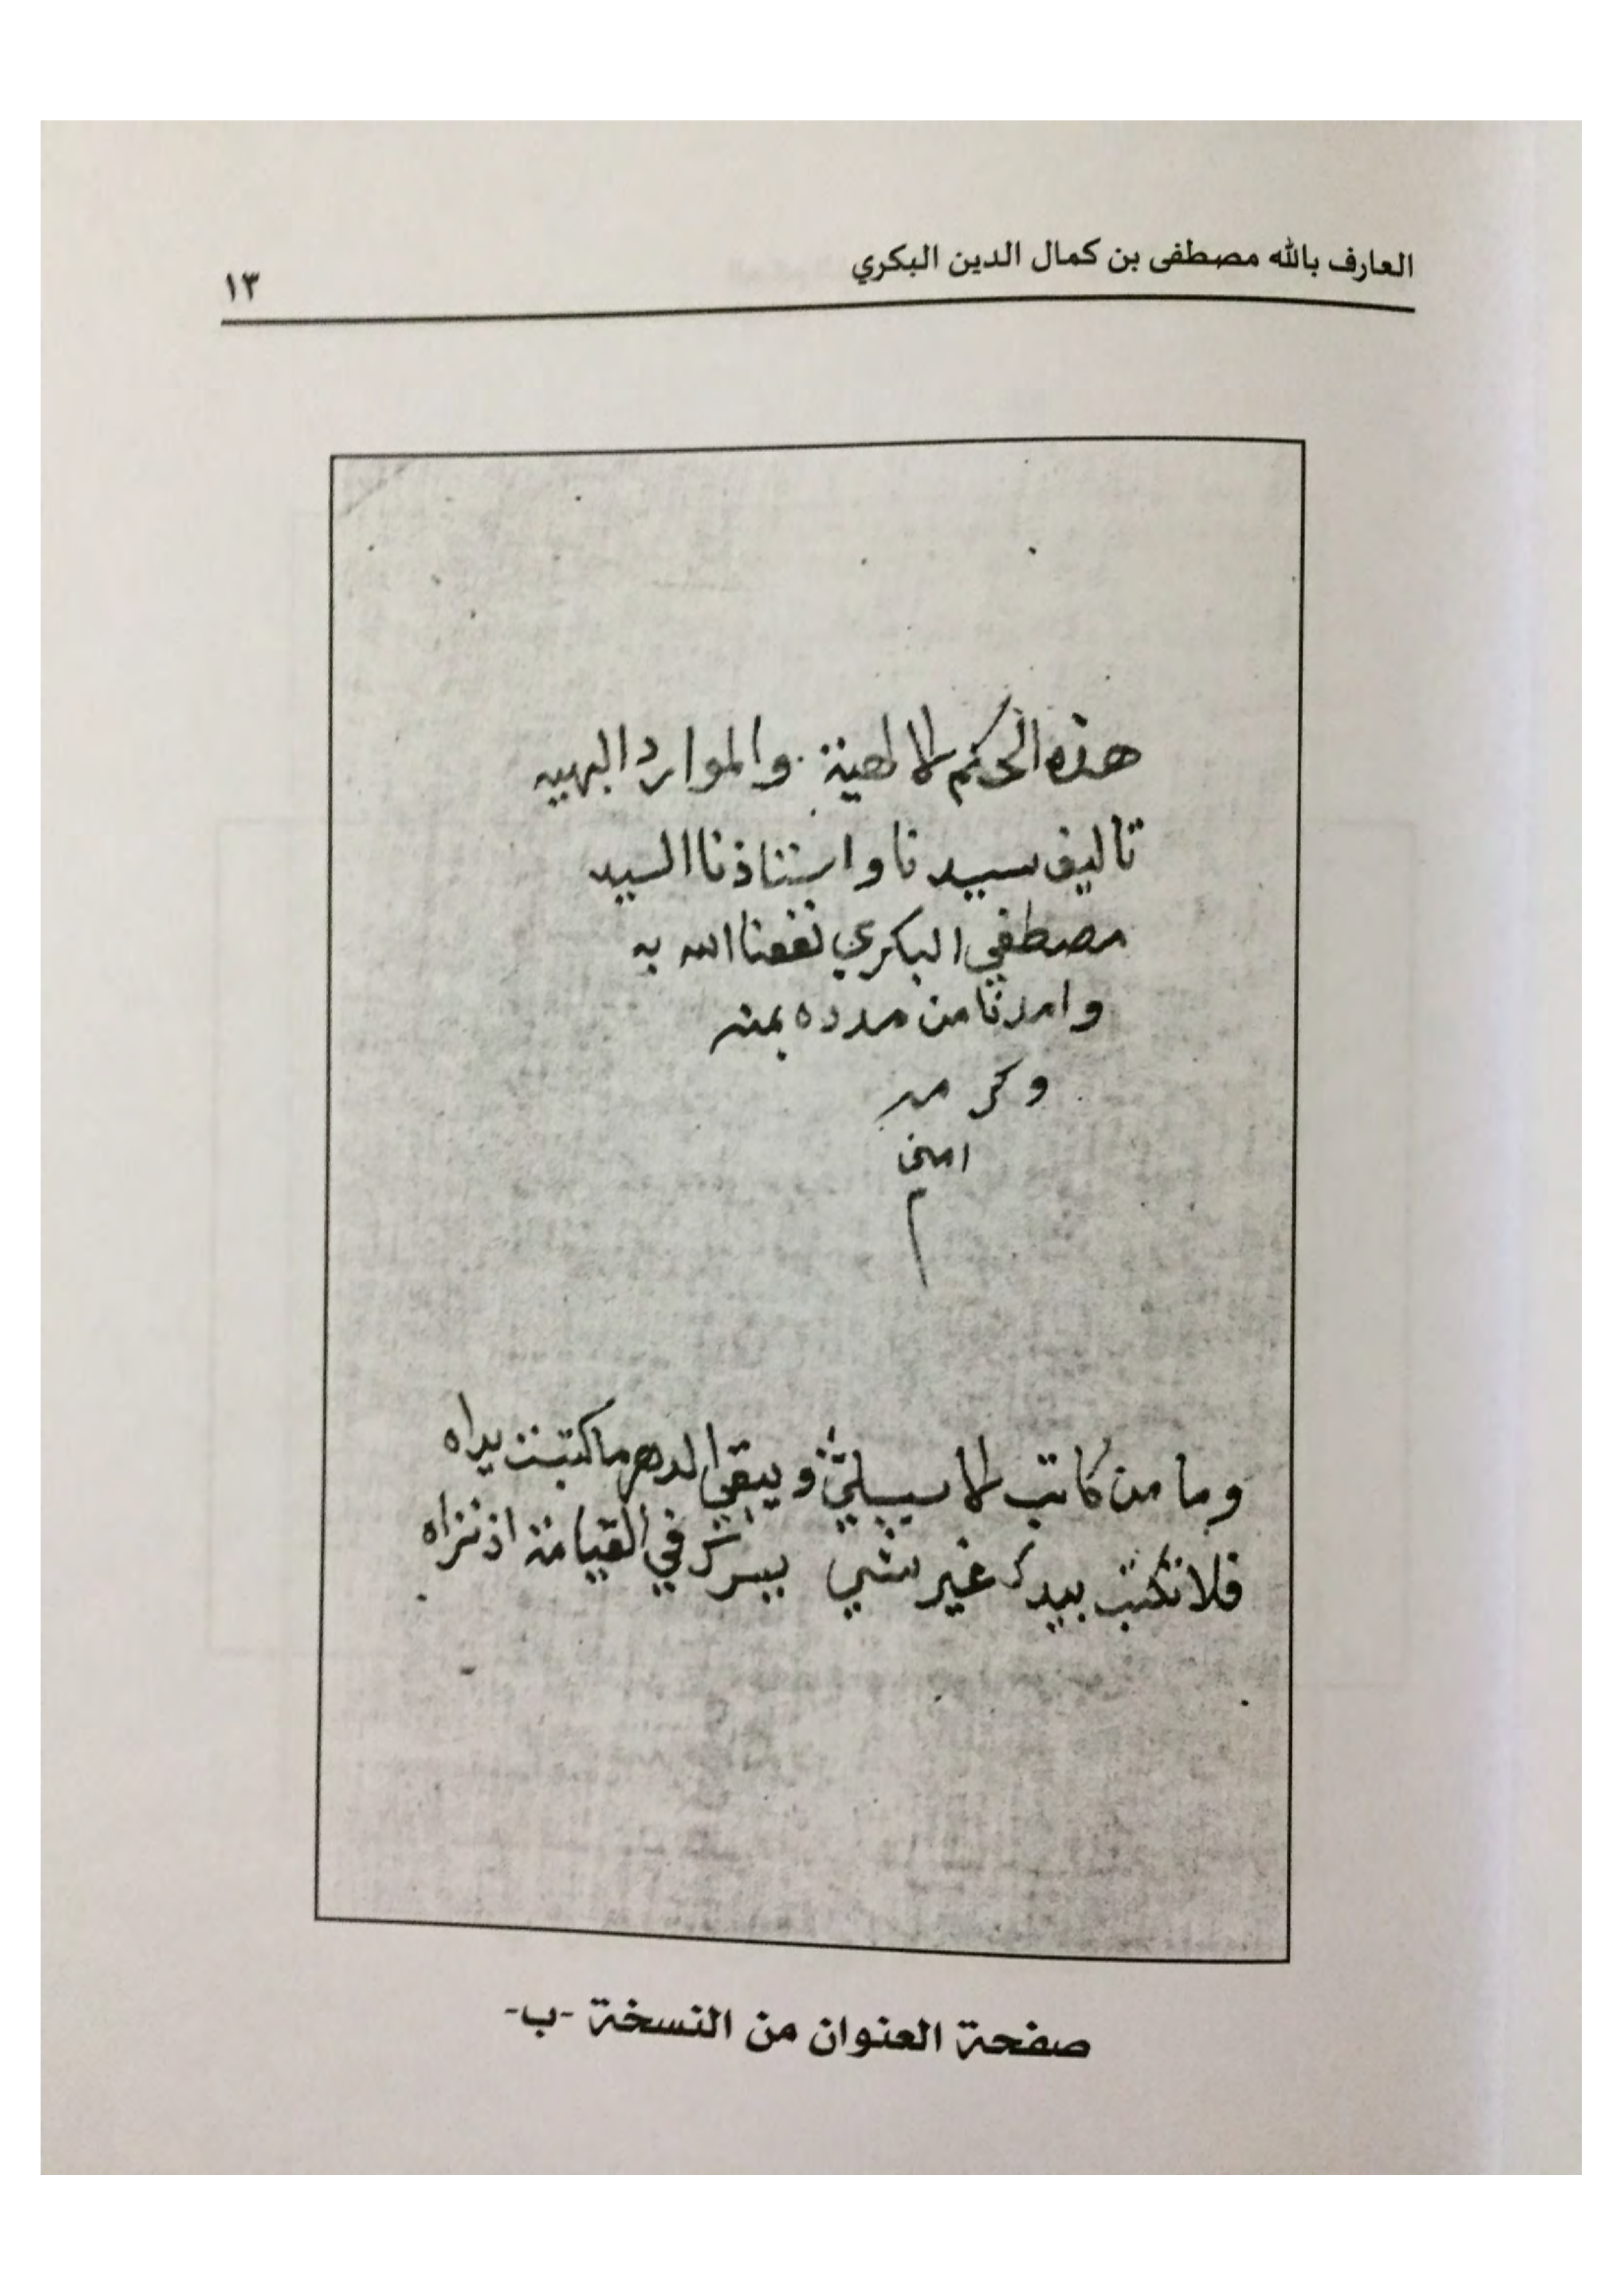 العارف بالله مصطفى بن كمال الدين البكري
١٣
هذه الحكم الالهية والموارد البهيه
تاليف سيدنا واستاذنا السيد
مصطفي البكري نفعنا الله به
وامدنا من مدده بمنه
وكرمه
امين
م
وما من كاتب الا سيبلي ويبقي الدهر ما كتبت يداه
فلا تكتب بيدك غير شي يسرك في القيامة اذ تراه
صفحة العنوان من النسخة -ب-